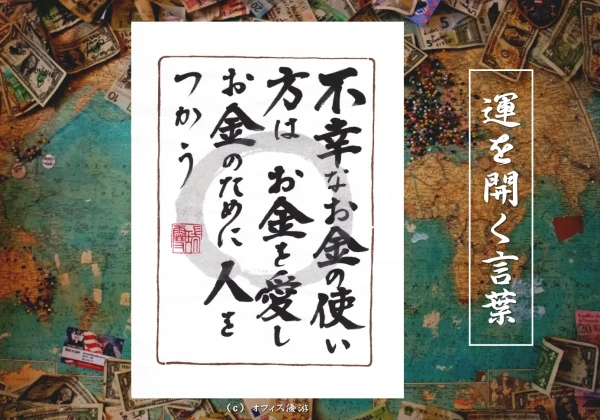 不幸なお金の使い
方は お金を愛し
お金のために 人を
つかう
運を開く言葉
(c) オフィス優游